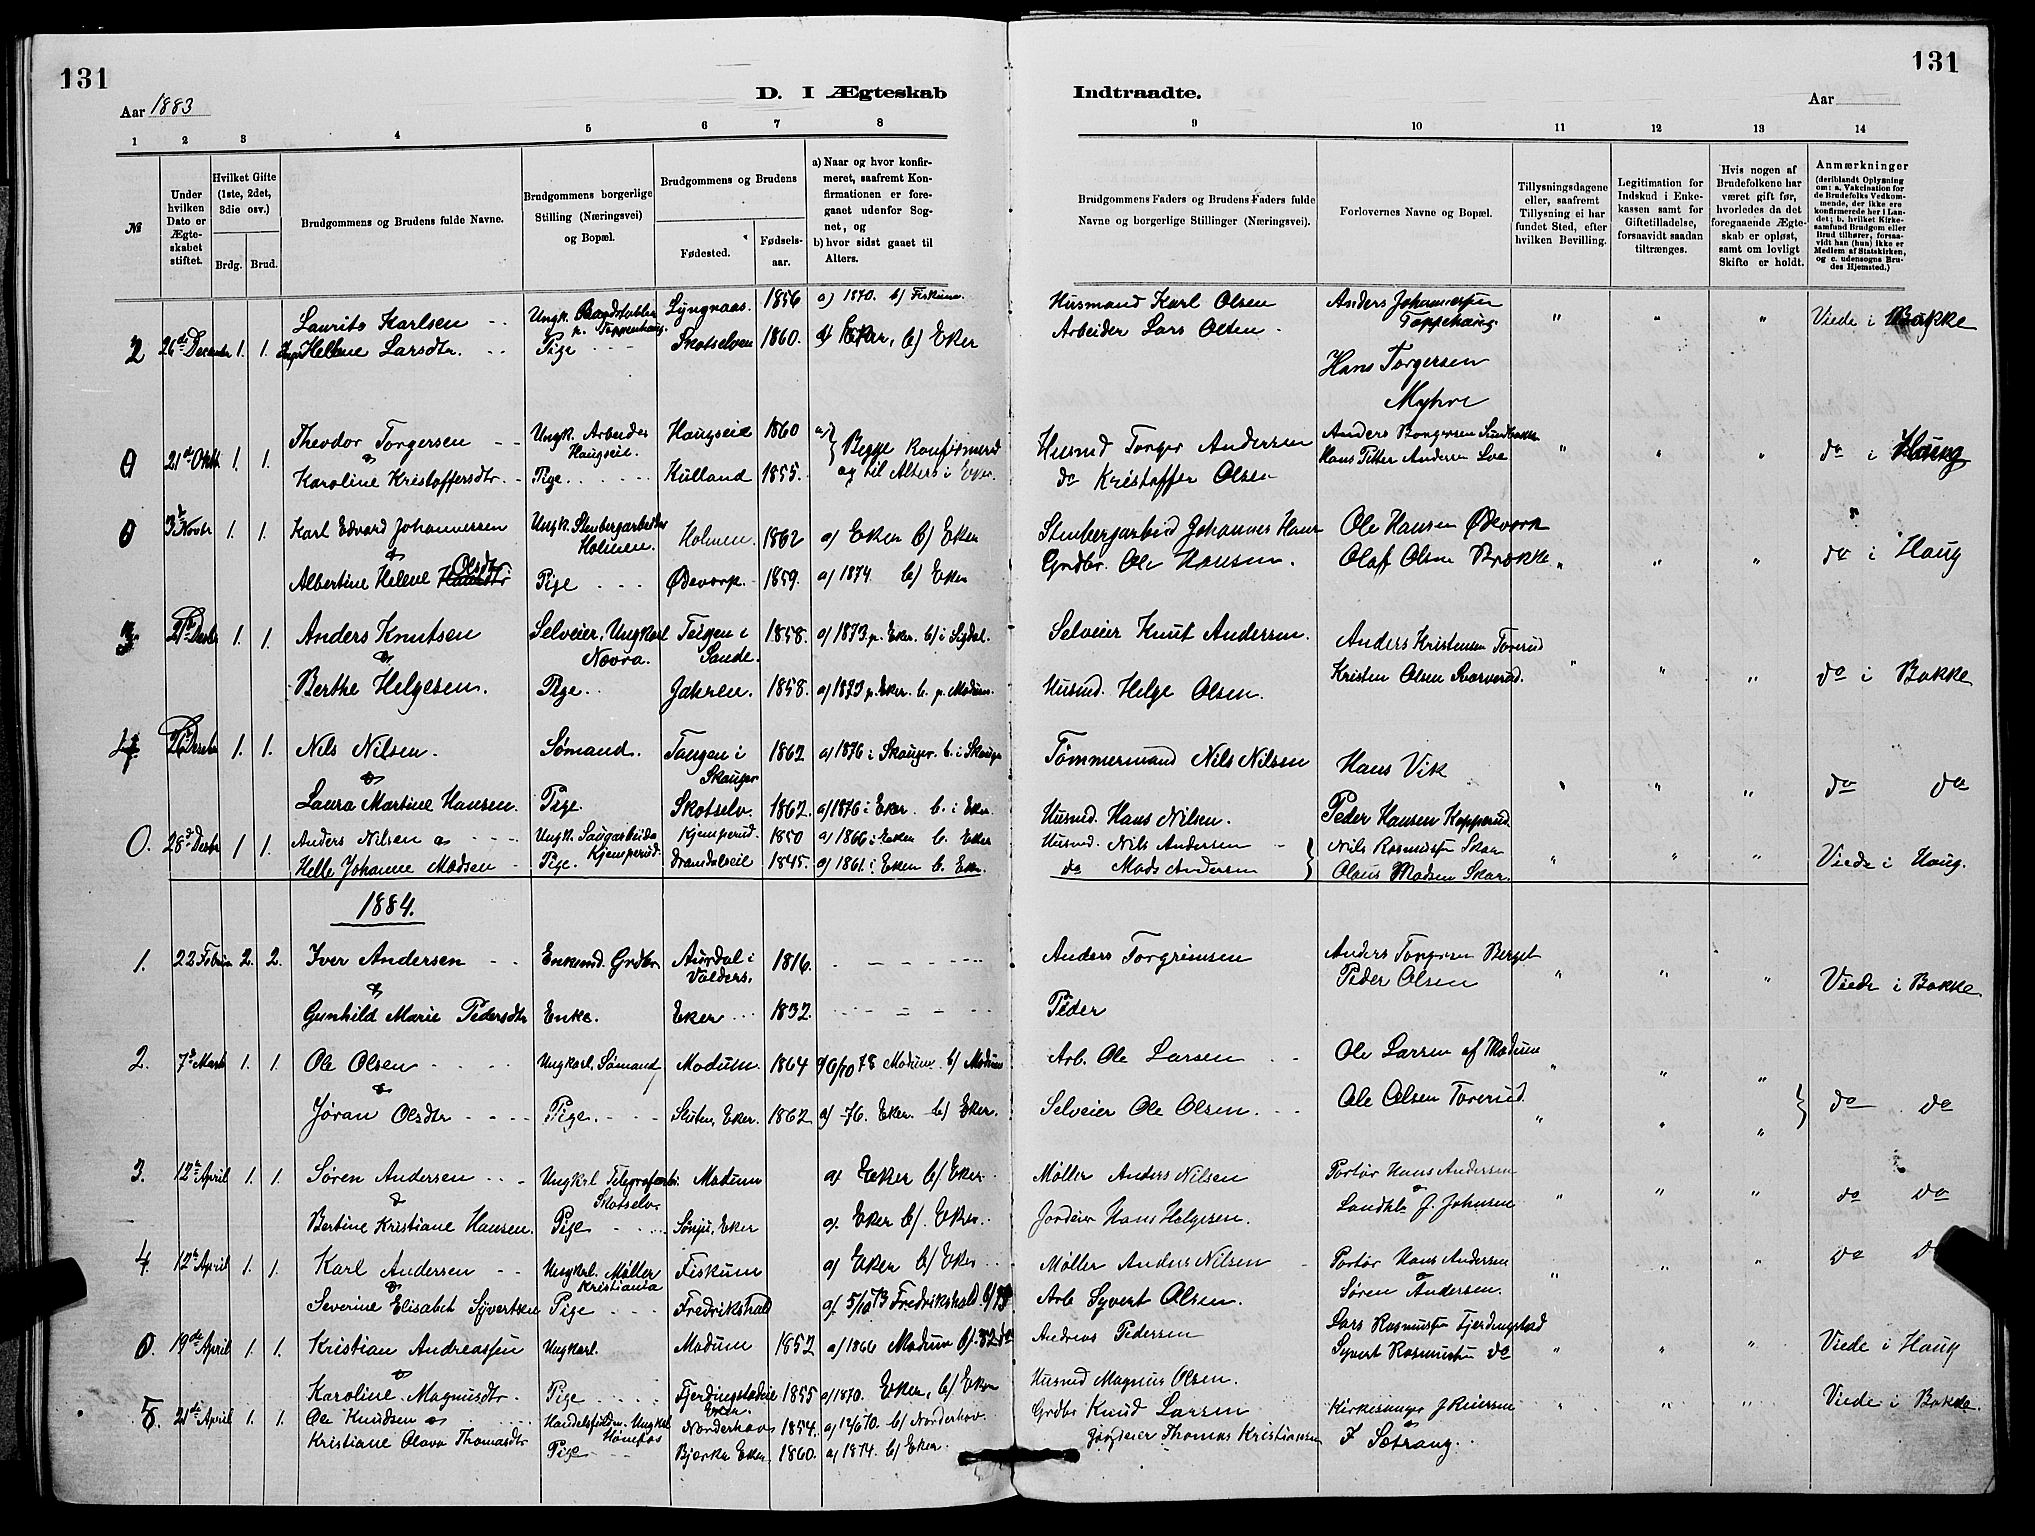 131
131
Aar 1883
D. I Ægteskab Indtraadte.
Aar
1 2 3 4 5 6 7 8 9 10 11 12 13 14
№
Under hvilken Dato er Ægteskabet stiftet.
Hvilket Gifte (1ste, 2det, 3die osv.)
Brdg. Brud.
Brudgommens og Brudens fulde Navne.
Brudgommens borgerlige Stilling (Næringsvei) og Bopæl.
Brudgommens og Brudens
Fødested. Fødselsaar.
a) Naar og hvor konfirmeret, saafremt Konfirmationen er foregaaet udenfor Sognet, og
b) hvor sidst gaaet til Alters.
Brudgommens Faders og Brudens Faders fulde Navne og borgerlige Stillinger (Næringsvei).
Forlovernes Navne og Bopæl.
Tillysningsdagene eller, saafremt Tillysning ei har fundet Sted, efter hvilken Bevilling.
Legitimation for Indskud i Enkekassen samt for Giftetilladelse, forsaavidt saadan tiltrænges.
Hvis nogen af Brudefolkene har været gift før, hvorledes da det foregaaende Ægteskab er opløst, samt om lovligt Skifte er holdt.
Anmærkninger (deriblandt Oplysning om: a. Vakcination for de Brudefolks Vedkommende, der ikke ere konfirmerede her i Landet; b. hvilket Kirkesamfund Brudgom eller Brud tilhører, forsaavidt han (hun) ikke er Medlem af Statskirken, og c. udensogns Brudes Hjemsted.)
Laurits Karlsen Ungk. Lyngnaas 1856 a) 1870. b) Fiskum. Husmand Karl Olsen Anders Johannessen
2 26de Decembr 1. 1. Helene Larsdtr. Pige Skotselven 1860. a) Eker, b) Eker Arbeider Lars Olsen Toppehaug " " " Viede i Bakke
Hans Torgersen
Myhre
Theodor Torgersen Ungk. Arbeider Haugseie Haugseie 1860 a) Husmd Torger Andersen Anders
0 21de Oktb 1. 1. & Begge Konfirmerd Hans Petter Andersen " " " do i Haug
Karoline Kristoffersdtr. Pige. Kulland 1855. og til Alters i Eker. do Kristoffer Olsen
0 3de Novbr 1. 1. Karl Edvard Johannessen Ungk. Stenbergarbeider Holmen. Holmen. 1862 a) Eker b) Eker Stenbergarbeid Johannes Hans Ole Hansen Ødevork
& Olsdtr
Albertine Helene Hansdtr Pige Ødevorp. 1859. a) 1874 b) Eker Grdbr. Ole Hansen. Olaf Olsen Brække " " " do i Haug
3 Decbr 1. 1. Anders Knutsen Selveier, Ungkarl Teigen i 1858. a) 1873. p. Eker. b) i Sigdal. Selveier Knut Andersen. Anders Kristensen Torerud
& Novra. Sande.
Berthe Helgesen. Pige Jahren. 1858. a) 1873 p. Eker. b. p. Modum. Husmd. Helge Olsen. Kristen Olsen " " " do i Bakke
4 26 Decbr 1. 1. Nils Nilsen. Sømand. Tangen i 1862 a) 1876 i Skauger. b. i Skauger Tømmermand Nils Nilsen Hans Vik
& Skauger " " " do do
Laura Martine Hansen. Pige. Skotselv. 1862. a) 1876 i Eker. b. i Eker Husmd. Hans Nilsen. Peder Hansen Kopperud
0. 28de Decbr 1 1. Anders Nilsen & Ungk. Saugarbeider Kjemperud. 1850 a) 1866 i Eker b. Eker Husmd. Nils Andersen Nils Rasmussen Skar
Helle Johanne Madsen Pige. Kjemperud. 1845. a) 1861. i Eker b. Eker. do Mads Andersen Olaus Madsen Skar. " " " Viede i Haug.
1884.
1. 22 Februar 2. 2. Iver Andersen Enkemd. Grdbr Aurdal i Valders. 1816. Anders Torgrimsen Anders Torgersen Berget
& Peder Olsen " " " Viede i Bakke.
Gunhild Marie Pedersdtr Enke. Eker 1832. Peder
2. 7de Marts 1. 1. Ole Olsen Ungkarl, Sømand Modum. 1864 a) 6/10 78 Modum. b) Modum Arb. Ole Larsen Ole Larsen af Modum " " "
&
Jøran Olsdtr Pige. Eker. 1862 a) -76. Eker. b) Eker. Selveier Ole Olsen. Ole Olsen Torerud. " " " do do
3. 12te April 1. 1. Søren Andersen Ungkarl Telegrafarb. Modum a) Eker b) Eker Møller Anders Nilsen Portør Hans Andersen
& Skotselv & " " " do do
Bertine Kristiane Hansen. Pige Eker a). Eker b). Eker. Jordeier Hans Helgesen. J. Johnsen
4. 12te April 1. 1. Karl Andersen Ungkarl. Møller Kristiania Fiskum a) Eker b) Eker Møller Anders Nilsen Portør Hans Andersen " " " do
& &
Severine Elisabet Syvertsen Pige Fredrikshald a). 5/10 73 Fredrikshald. Arb Syvert Olsen. Søren Andersen.
0. 19de April 1. 1. Kristian Andreassen Ungkarl. Modum 1852 a) 1866 Modum Andreas Pedersen Lars Rasmussen Fjerdingstad
& Syvert Rasmussen do " " " Viede i Haug
Karoline Magnusdtr. Pige Fjerdingstadeie Eker. 1855 a) 1870. Eker, b) Eker Husmd Magnus Olsen.
5. 21de April 1. 1. Ole Knudsen & Ungkarl Hønefos Norderhov 1854. b) Norderhov. Grdbr Knud Larsen Kirkesanger J Reiersen " " " Viede i Bakke.
Kristiane Olava Thomasdtr Pige Bjerke Eker. 1860. a) 1874 b) Eker. Jordeier Thomas Kristiansen & Sætrang.